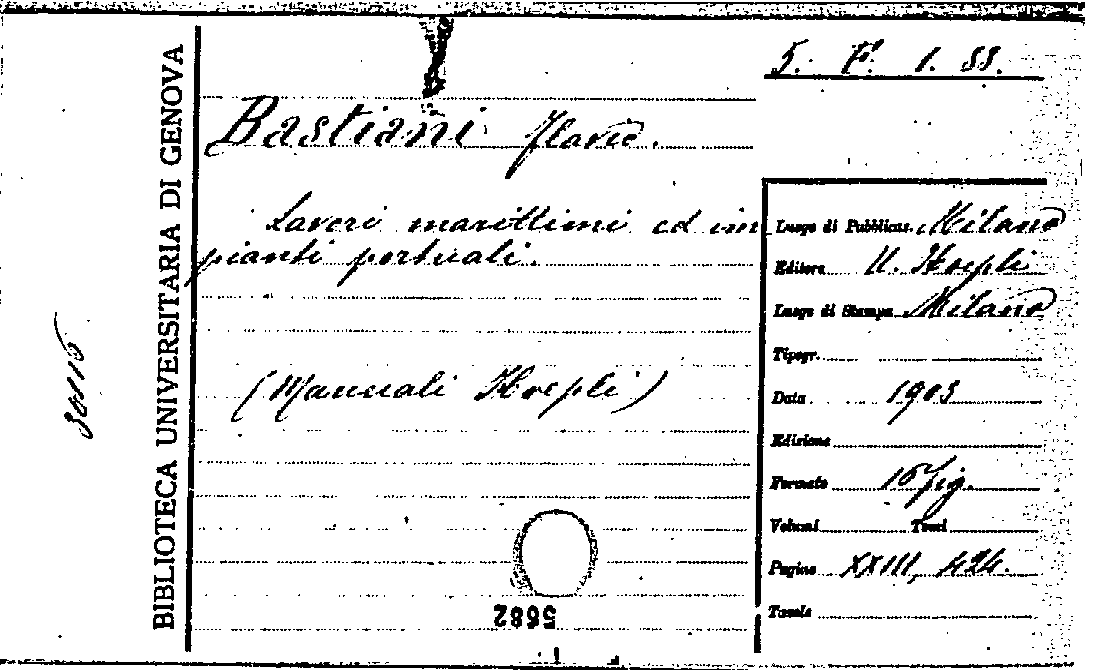 5. F. 1. 88.
Bastiani Flavio.
Lavori marittimi ed im
pianti portuali.
(Manuali Hoepli)
Luogo di Pubblicaz. Milano
Editore U. Hoepli
Luogo di Stampa Milano
Tipogr.
Data 1903
Edizione
Formato 16 fig.
Volumi Tomi
Pagine XXIII, 424.
Tavole
BIBLIOTECA UNIVERSITARIA DI GENOVA
5682